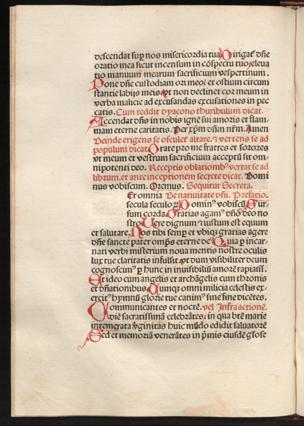 descendat sup̱ nos misericordia tua. Dirigat̄ dn̄e
oratio mea sicut incensum in cōspectu tuo: eleva
tio manuum mearum sacrificium vespertinum.
Pone dn̄e custodiam ori meo: et ostium circum
stantie labijs meis. Ut non declinet cor meum in
verba malicie ad excusandas excusationes in pec
catis. Cum reddit dyacono thuribulum dicat.
Accendat dn̄s in nobis ignē sui amoris et flam-
mam eterne caritatis. Per xp̄m dn̄m nr̄m. Amen
Deinde erigens se osculet̄ altare. et vertens se ad
populum dicat. Orate pro me fratres et sorores
ut meum et vestrum sacrificium acceptū sit om-
nipotenti deo. Receptis oblationib⁹ vertat̄ se ad
librum. et ante inceptionem secrete dicat. Domi
nus vobiscum. Oremus. Sequitur Secreta.
Per omnia De nativitate dn̄i. Prefatio.
secula seculorū. Dominꝰ vobiscū. Sur
sum corda. Gratias agamꝰ dn̄o deo no
stro. Vere dignum et iustum est equum
et salutare. Nos tibi semp̱ et ubiqꝫ gratias agere
dn̄e sancte pater omp̄s eterne deꝰ. Quia p̱ incar-
nati verbi misterium nova mentis nostre oculis
lux tue claritatis infulsit. ut dum visibiliter deum
cognoscimꝰ p̱ hunc in invisibiliū amorē rapiamꝰ.
Et ideo cum angelis et archāgelis cum thronis
et dn̄ationibus. Cumqꝫ omni militia celestis ex-
ercitꝰ hymnū glorie tue canimꝰ sine fine dicētes.
Communicantes et noctē. vel Infra actionē.
diē sacratissimā celebrātes: in qua btē̄ marie
intemerata virginitas huic mūdo edidit salvatorē
Sed et memoriā venerātes in p̱mis eiusdē glose